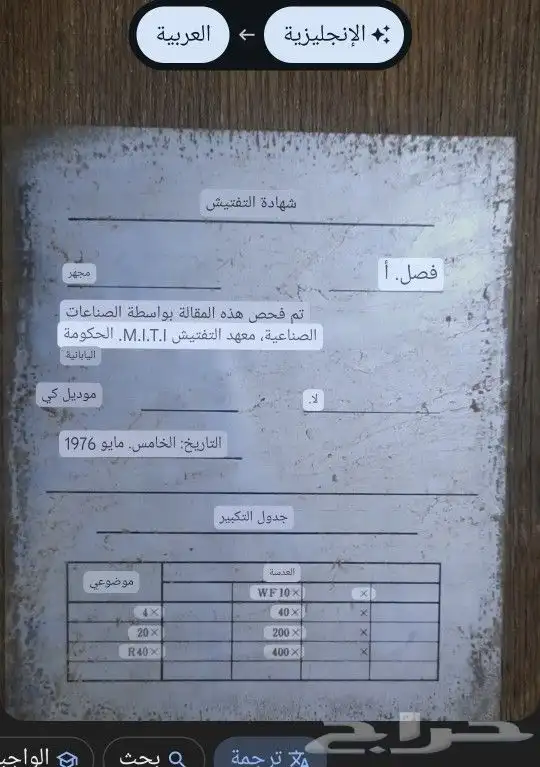 الإنجليزية ← العربية
شهادة التفتيش
مجهر
فصل. أ
تم فحص هذه المقالة بواسطة الصناعات
الصناعية، معهد التفتيش M.I.T.I. الحكومة
اليابانية
موديل كي
لا.
التاريخ: الخامس. مايو 1976
جدول التكبير
موضوعي
العدسة
WF10× ×
4× 40× ×
20× 200× ×
R40× 400× ×
حراج
ترجمة
بحث
الواجب